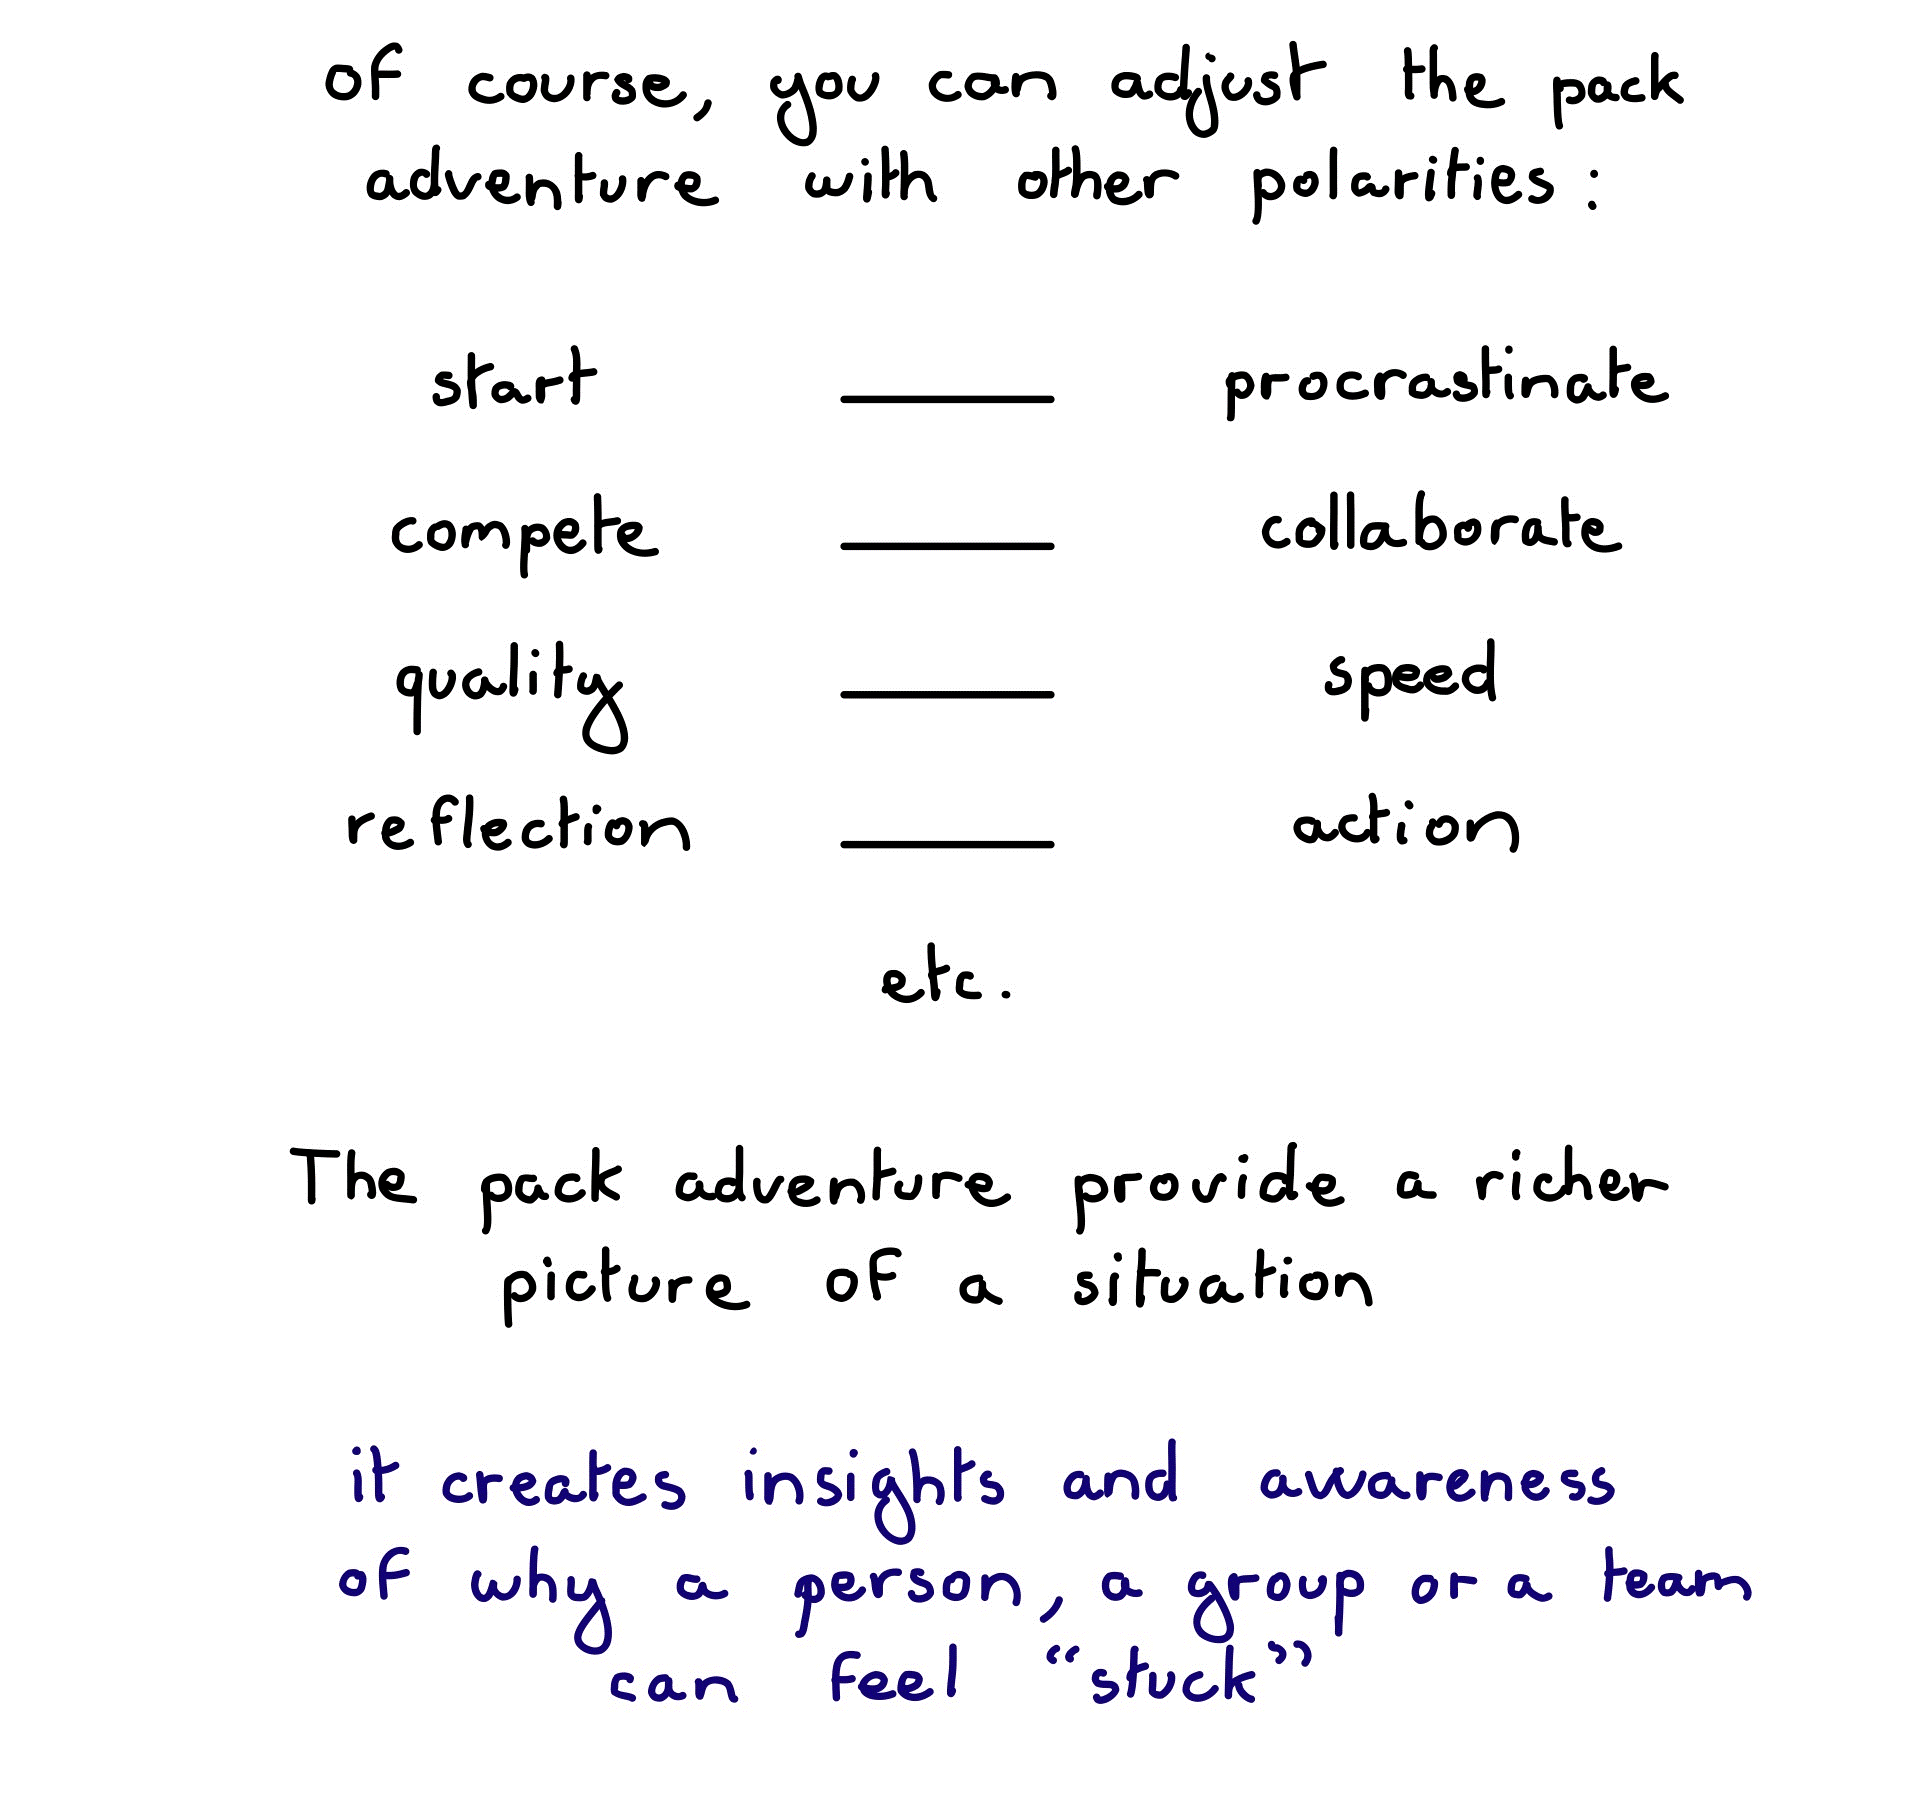 of course, you can adjust the pack
adventure with other polarities :
start procrastinate
compete collaborate
quality speed
reflection action
etc.
The pack adventure provide a richer
picture of a situation
it creates insights and awareness
of why a person, a group or a team
can feel “stuck”